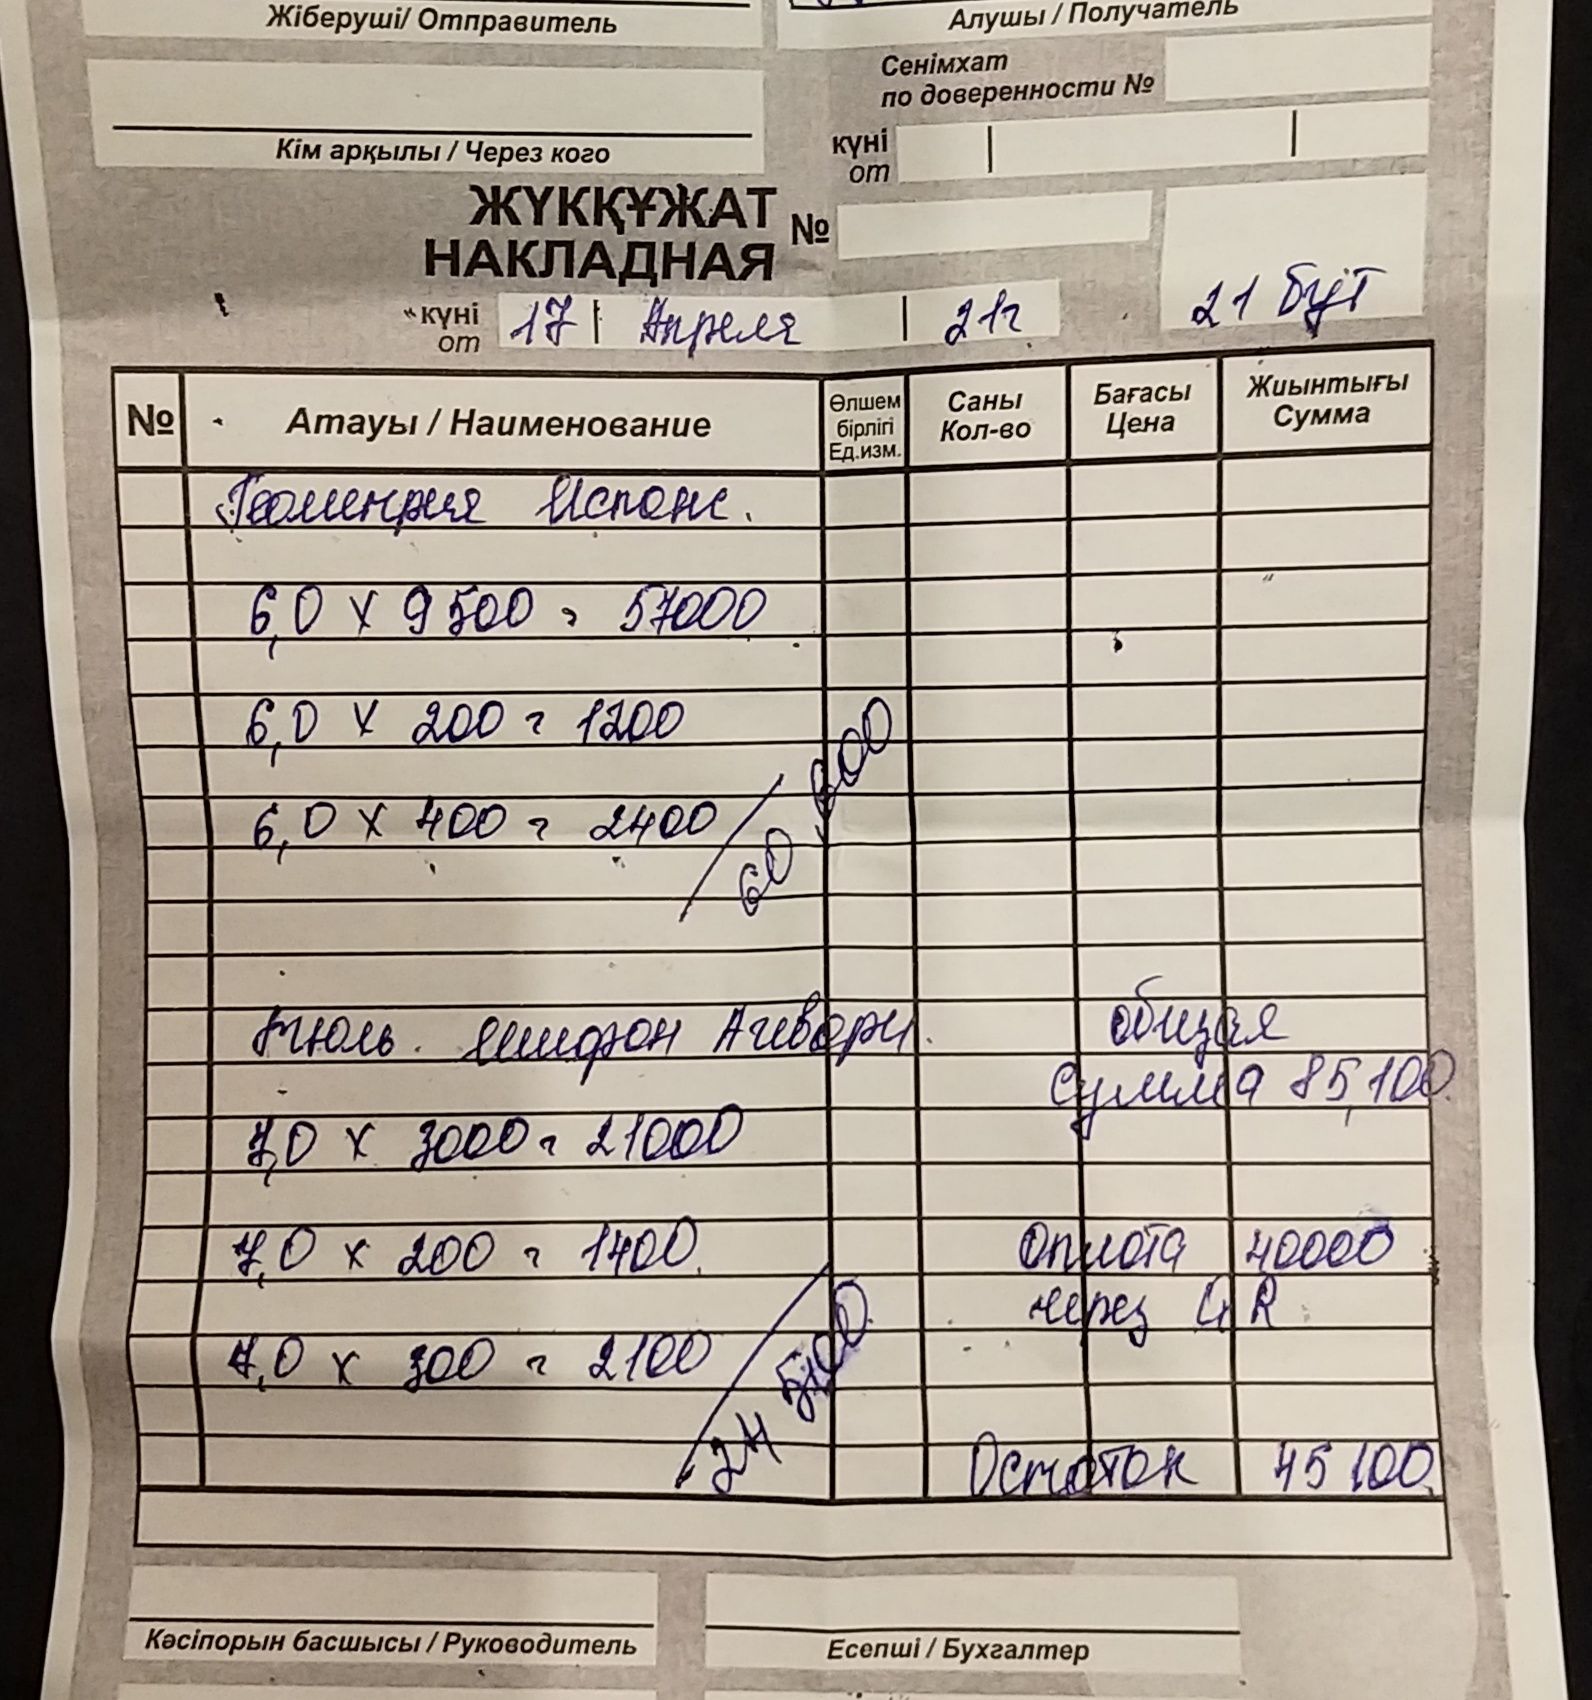 Жіберуші/ Отправитель
Алушы / Получатель
Сенімхат
по доверенности №
Кім арқылы / Через кого
күні
от
ЖҮКҚҰЖАТ
НАКЛАДНАЯ
№
күні
от
17 Апреля 21г
21 бут
№
Атауы / Наименование
Өлшем
бірлігі
Ед.изм.
Саны
Кол-во
Бағасы
Цена
Жиынтығы
Сумма
Геометрия Испанс.
6,0 х 9500 = 57000
6,0 х 200 = 1200
6,0 х 400 = 2400
60,600
тюль. шифон Айвори.
общая
сумма 85,100
7,0 х 3000 = 21000
7,0 х 200 = 1400
Оплата 40000
через QR
7,0 х 300 = 2100
24 500
Остаток 45 100
Кәсіпорын басшысы / Руководитель
Есепші / Бухгалтер